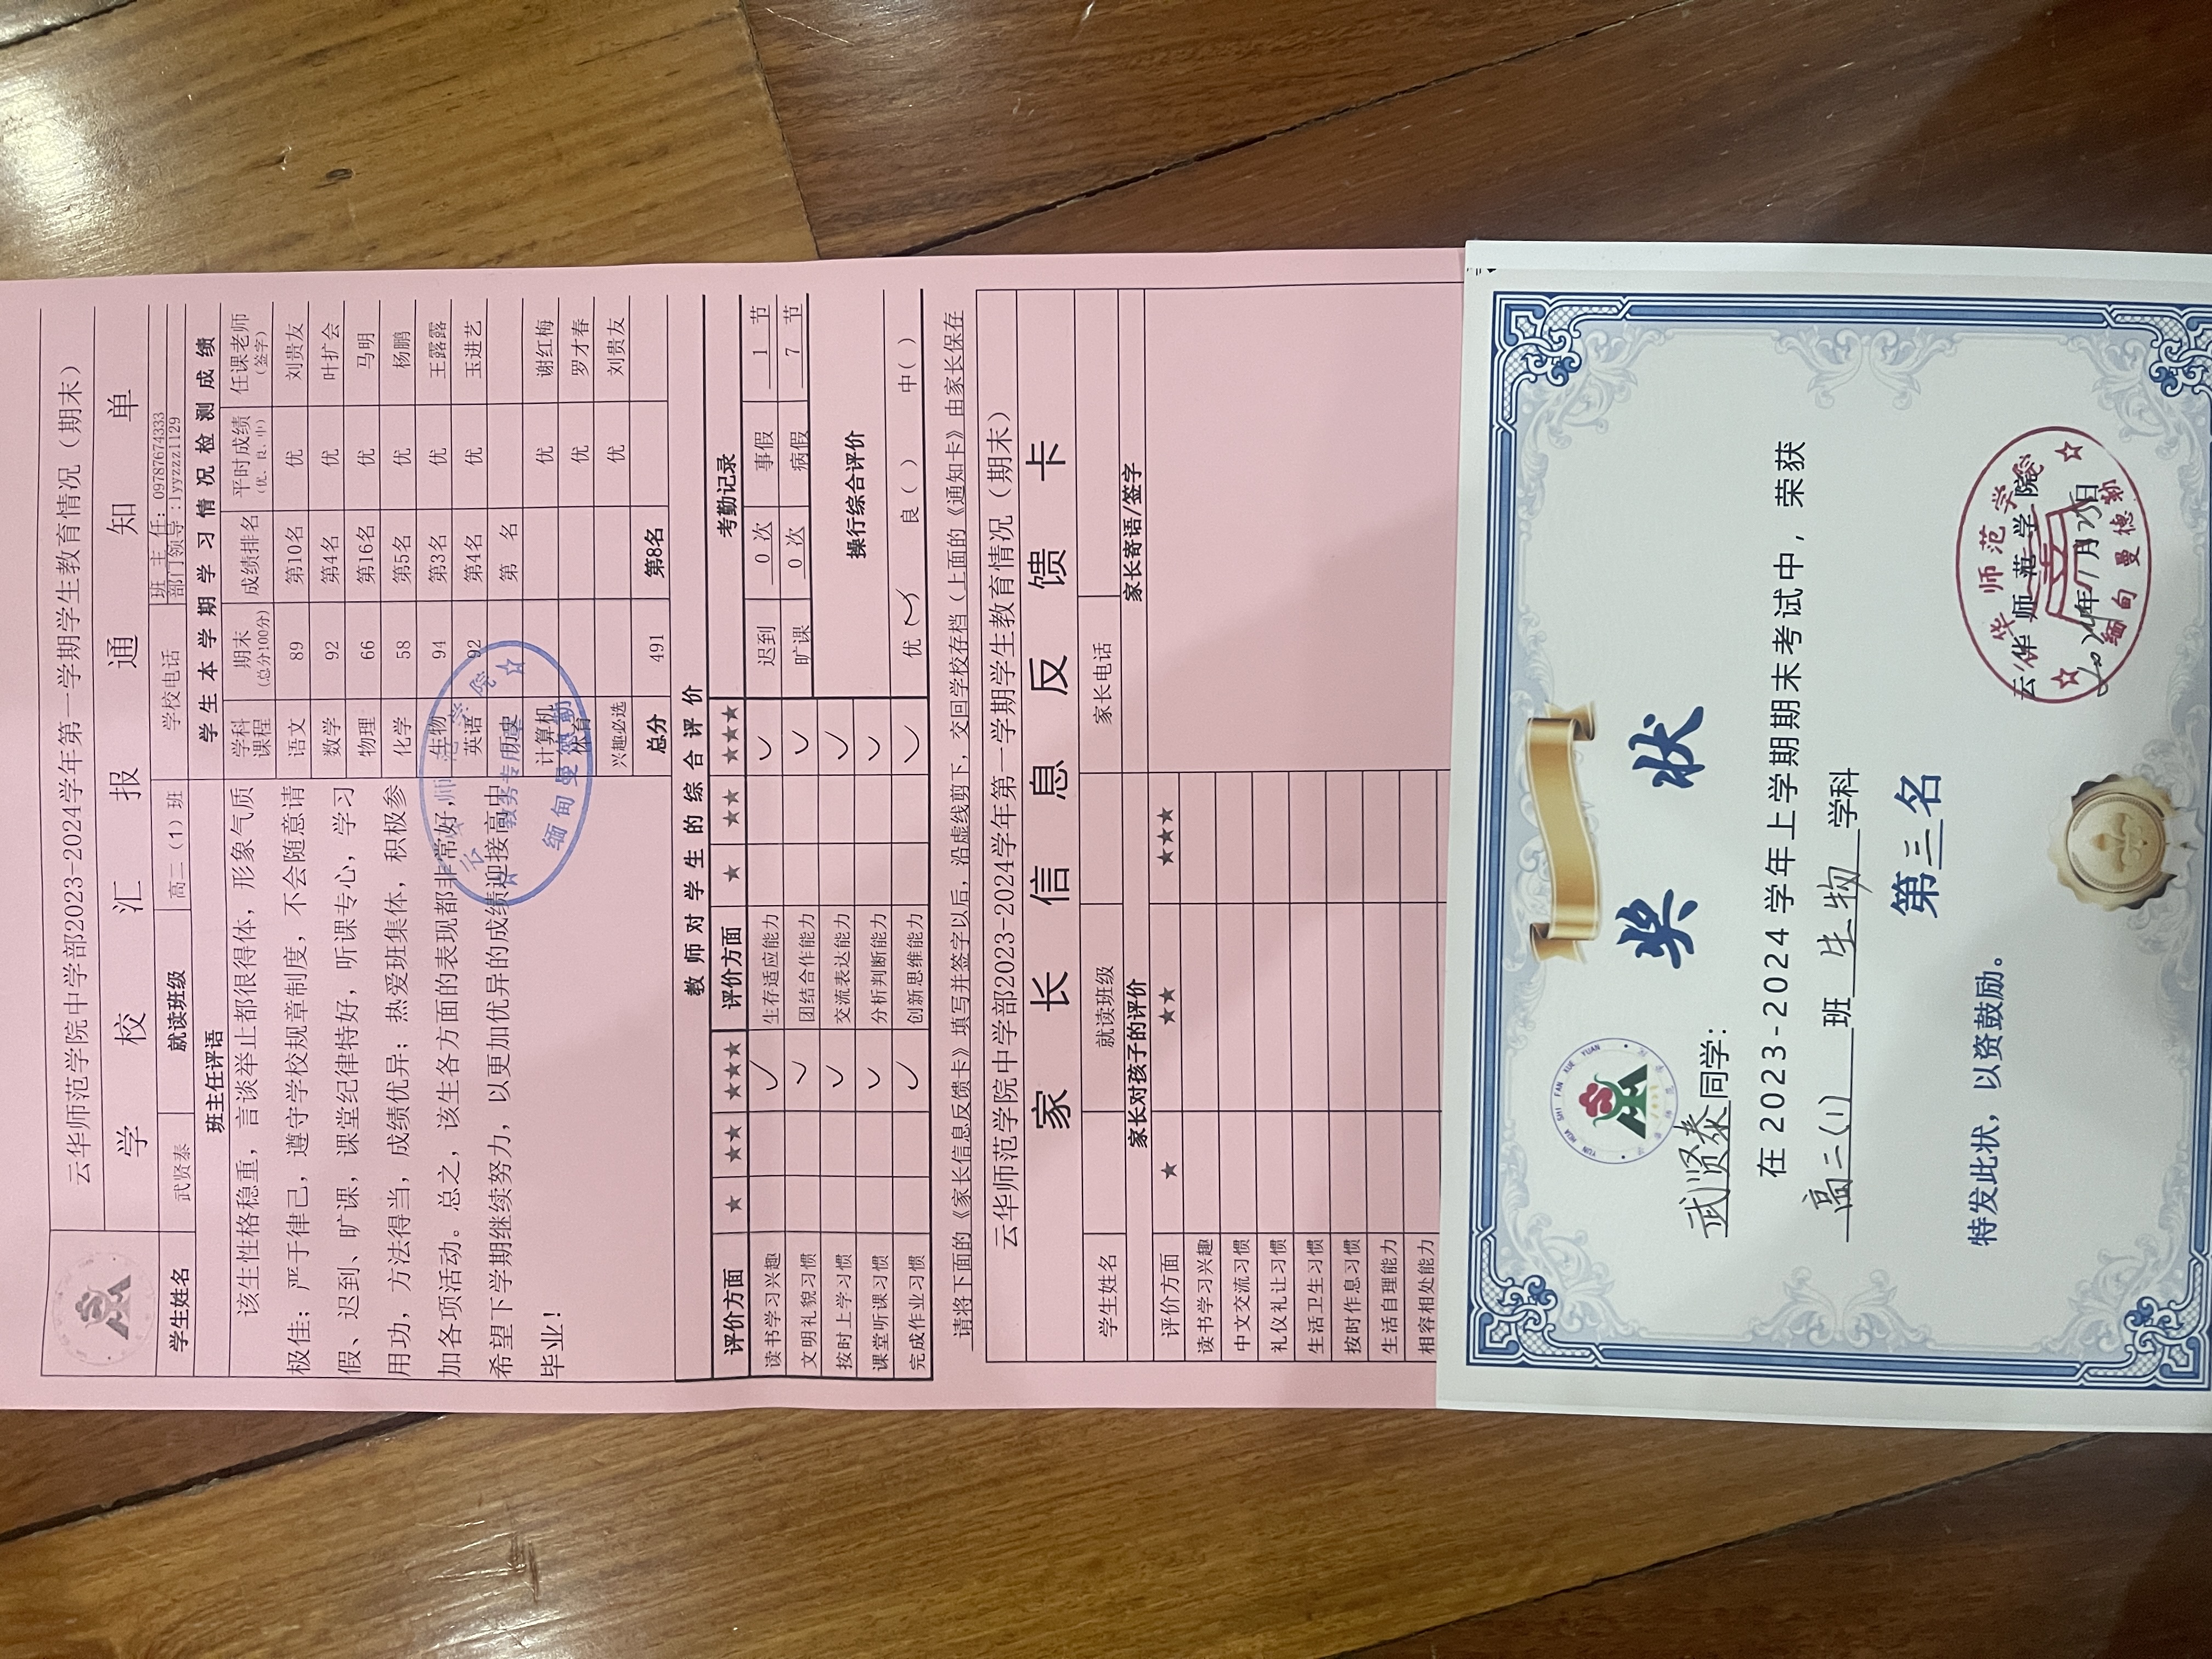 云华师范学院中学部2023-2024学年第一学期学生教育情况（期末）
学 校 汇 报 通 知 单
学生姓名 武贤泰 就读班级 高二（1）班 学校电话 班 主 任：09787674333
部门领导：lyyzzz1129
班主任评语
该生性格稳重，言谈举止都很得体，形象气质
极佳；严于律己，遵守学校规章制度，不会随意请
假、迟到、旷课，课堂纪律特好，听课专心，学习
用功，方法得当，成绩优异；热爱班集体，积极参
加各项活动。总之，该生各方面的表现都非常好，
希望下学期继续努力，以更加优异的成绩迎接高中
毕业！
学生本学期学习情况检测成绩
学科课程 期末（总分100分） 成绩排名 平时成绩（优、良、中） 任课老师（签字）
语文 89 第10名 优 刘贵友
数学 92 第4名 优 叶扩会
物理 66 第16名 优 马明
化学 58 第5名 优 杨鹏
生物 94 第3名 优 王露露
英语 92 第4名 优 玉进艺
历史 第 名
计算机 优 谢红梅
体育 优 罗才春
兴趣必选 优 刘贵友
总分 491 第8名
云华师范学院
教务专用章
缅甸曼德勒
教师对学生的综合评价
评价方面 ★ ★★ ★★★ 评价方面 ★ ★★ ★★★ 考勤记录
读书学习兴趣 ✓ 生存适应能力 ✓ 迟到 0 次 事假 1 节
文明礼貌习惯 ✓ 团结合作能力 ✓ 旷课 0 次 病假 7 节
按时上学习惯 ✓ 交流表达能力 ✓ 操行综合评价
课堂听课习惯 ✓ 分析判断能力 ✓
完成作业习惯 ✓ 创新思维能力 ✓ 优（✓） 良（ ） 中( )
请将下面的《家长信息反馈卡》填写并签字以后，沿虚线剪下，交回学校存档（上面的《通知卡》由家长保存
云华师范学院中学部2023-2024学年第一学期学生教育情况（期末）
家 长 信 息 反 馈 卡
学生姓名 就读班级 家长电话
家长对孩子的评价 家长寄语/签字
评价方面 ★ ★★ ★★★
读书学习兴趣
中文交流习惯
礼仪礼让习惯
生活卫生习惯
按时作息习惯
生活自理能力
相容相处能力
YUN HUA SHI FAN XUE YUAN
奖 状
武贤泰同学：
在2023-2024学年上学期期末考试中，荣获
高二(1)班 生物 学科
第三名
特发此状，以资鼓励。
云华师范学院
云华师范学院
2024年1月25日
缅甸 曼德勒